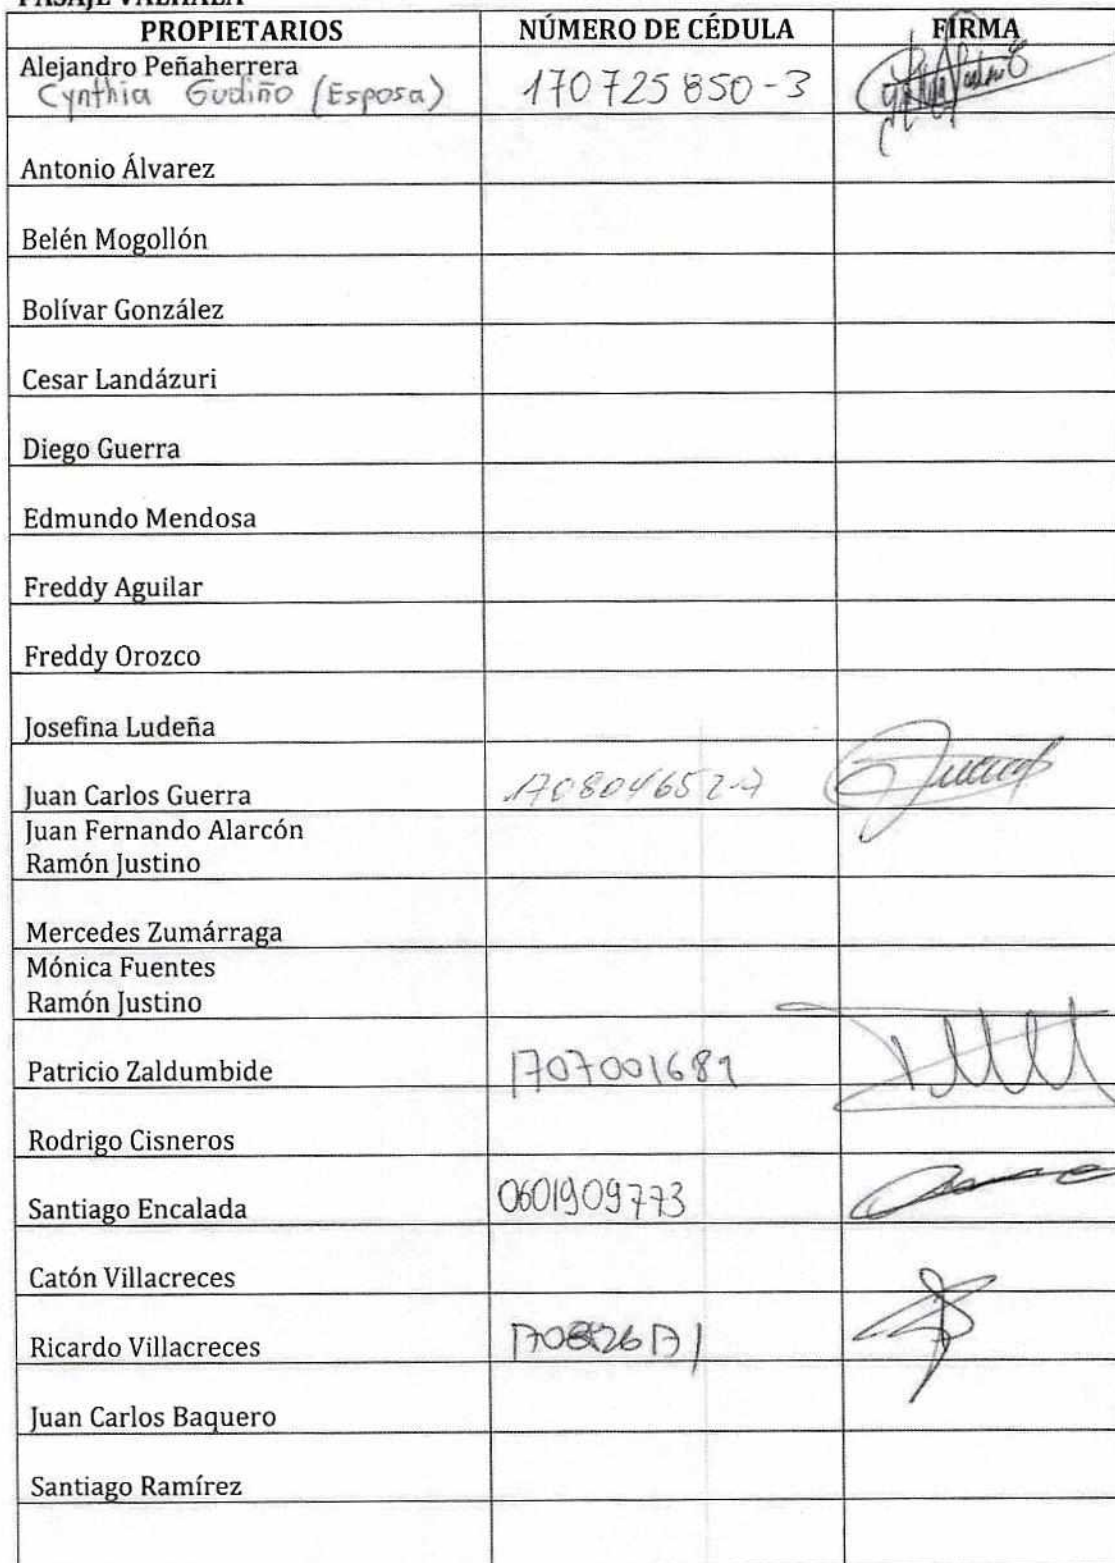 PASAJE VALHALA
PROPIETARIOS NÚMERO DE CÉDULA FIRMA
Alejandro Peñaherrera
Cynthia Gudiño (Esposa) 170725850-3
Antonio Álvarez
Belén Mogollón
Bolívar González
Cesar Landázuri
Diego Guerra
Edmundo Mendosa
Freddy Aguilar
Freddy Orozco
Josefina Ludeña
Juan Carlos Guerra 170804652-7
Juan Fernando Alarcón
Ramón Justino
Mercedes Zumárraga
Mónica Fuentes
Ramón Justino
Patricio Zaldumbide 1707001681
Rodrigo Cisneros
Santiago Encalada 0601909773
Catón Villacreces
Ricardo Villacreces
Juan Carlos Baquero
Santiago Ramírez